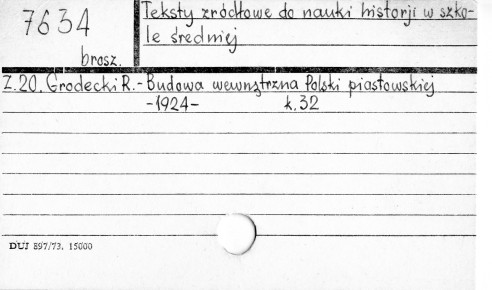 7634
brosz.
Teksty źródłowe do nauki historji w szko-
le średniej
Z.20. Grodecki R.- Budowa wewnętrzna Polski piastowskiej
-1924- k.32
DUJ 897/73. 15000